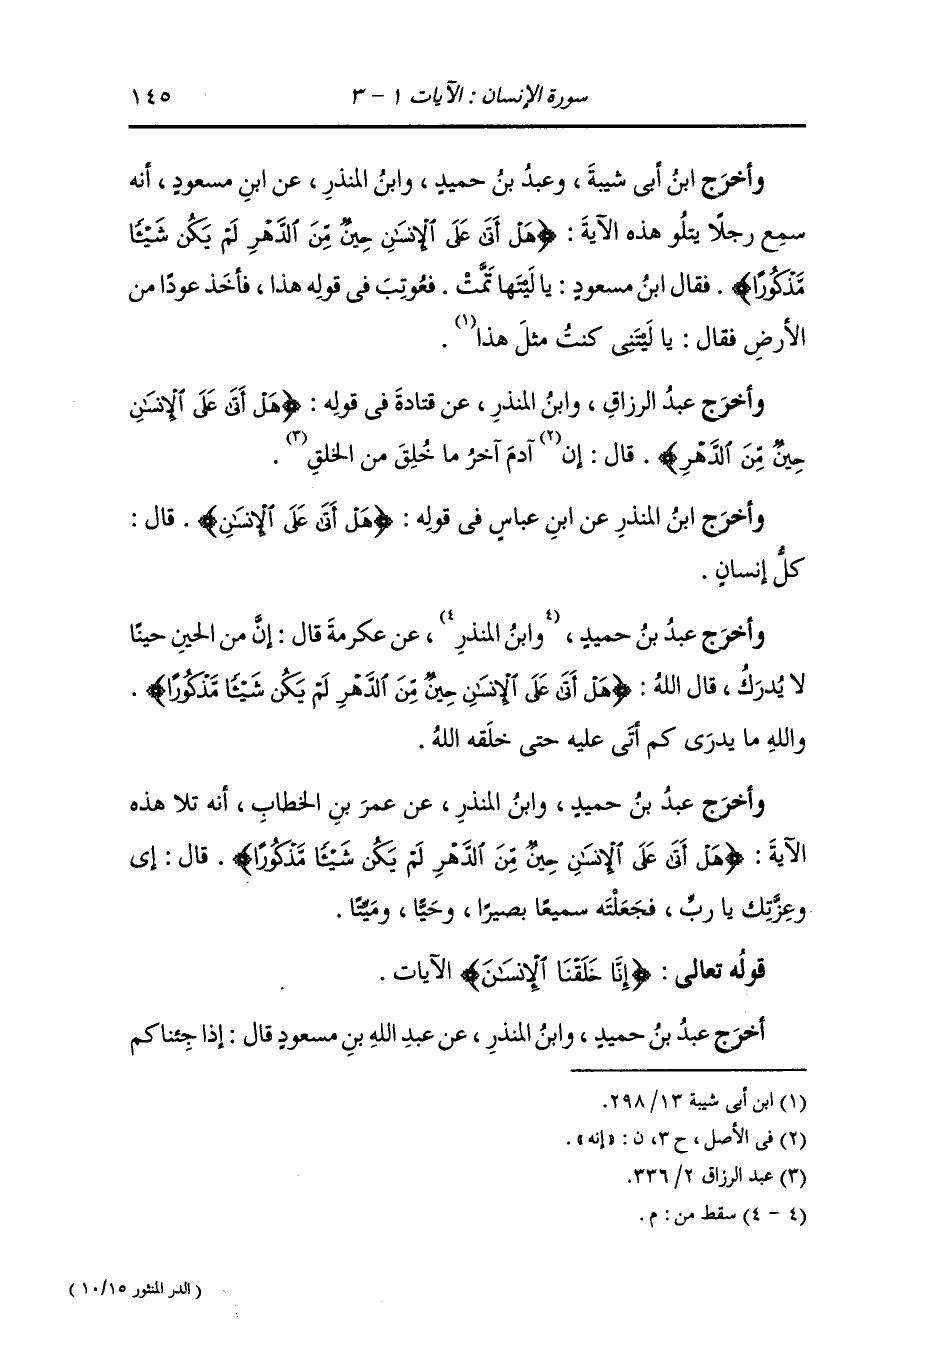 سورة الإنسان : الآيات ١ - ٣ ١٤٥
وأخرَج ابنُ أبى شيبةَ ، وعبدُ بنُ حميدٍ ، وابنُ المنذرِ ، عن ابنِ مسعودٍ ، أنه
سمِع رجلًا يتلُو هذه الآيةَ : ﴿هَلْ أَتَىٰ عَلَى ٱلْإِنسَٰنِ حِينٌ مِّنَ ٱلدَّهْرِ لَمْ يَكُن شَيْـًٔا
مَّذْكُورًا﴾ . فقال ابنُ مسعودٍ : يا لَيْتَها تَمَّتْ . فعُوتِبَ فى قولِه هذا ، فأخَذ عودًا من
الأرضِ فقال : يا لَيْتَنِى كنتُ مثلَ هذا(١) .
وأخرَج عبدُ الرزاقِ ، وابنُ المنذرِ ، عن قتادةَ فى قولِه : ﴿هَلْ أَتَىٰ عَلَى ٱلْإِنسَٰنِ
حِينٌ مِّنَ ٱلدَّهْرِ﴾ . قال : إن(٢) آدمَ آخرُ ما خُلِقَ من الخلقِ(٣) .
وأخرَج ابنُ المنذرِ عن ابنِ عباسٍ فى قولِه : ﴿هَلْ أَتَىٰ عَلَى ٱلْإِنسَٰنِ﴾ . قال :
كلُّ إنسانٍ .
وأخرَج عبدُ بنُ حميدٍ ، (٤وابنُ المنذرِ٤) ، عن عكرمةَ قال : إنَّ من الحينِ حينًا
لا يُدرَكُ ، قال اللهُ : ﴿هَلْ أَتَىٰ عَلَى ٱلْإِنسَٰنِ حِينٌ مِّنَ ٱلدَّهْرِ لَمْ يَكُن شَيْـًٔا مَّذْكُورًا﴾ .
واللهِ ما يدرَى كم أتَى عليه حتى خلَقه اللهُ .
وأخرَج عبدُ بنُ حميدٍ ، وابنُ المنذرِ ، عن عمرَ بنِ الخطابِ ، أنه تلا هذه
الآيةَ : ﴿هَلْ أَتَىٰ عَلَى ٱلْإِنسَٰنِ حِينٌ مِّنَ ٱلدَّهْرِ لَمْ يَكُن شَيْـًٔا مَّذْكُورًا﴾ . قال : إى
وعِزَّتِك يا ربِّ ، فجَعَلْتَه سميعًا بصيرًا ، وحَيًّا ، ومَيِّتًا .
قولُه تعالى : ﴿إِنَّا خَلَقْنَا ٱلْإِنسَٰنَ﴾ الآيات .
أخرَج عبدُ بنُ حميدٍ ، وابنُ المنذرِ ، عن عبدِ اللهِ بنِ مسعودٍ قال : إذا جِئناكم
(١) ابن أبى شيبة ١٣/ ٢٩٨.
(٢) فى الأصل ، ح ٣، ن : «إنه» .
(٣) عبد الرزاق ٢/ ٣٣٦.
(٤ - ٤) سقط من : م .
( الدر المنثور ١٠/١٥ )